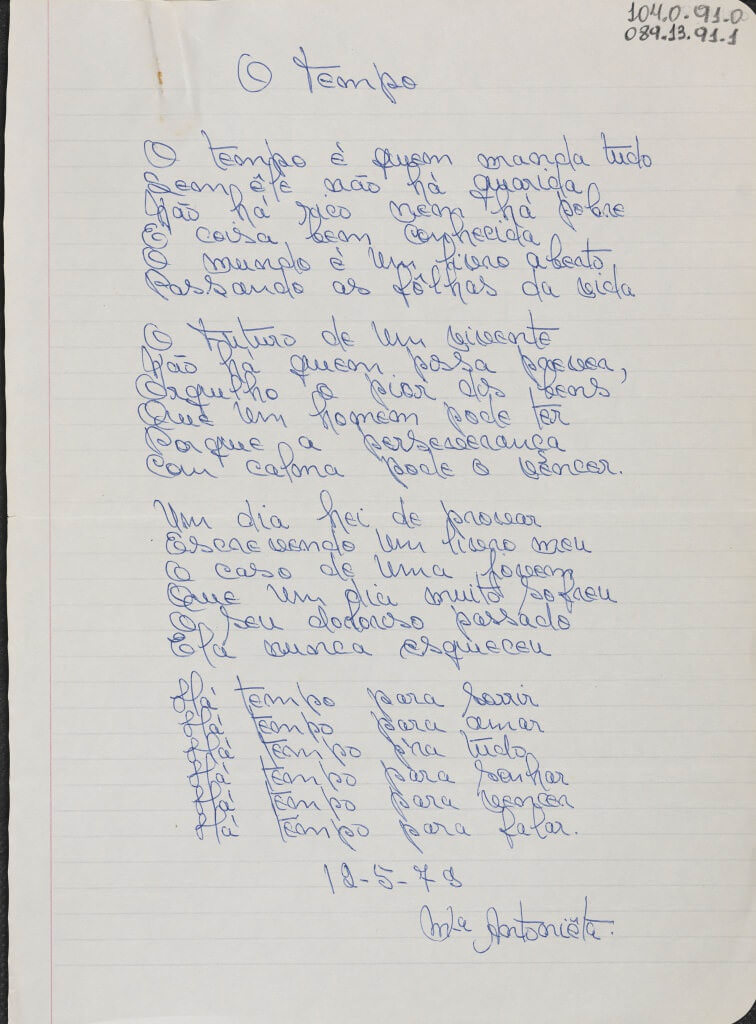 104.0-91.0
089.13.91-1
O tempo
O tempo é quem manda tudo
Sem êle não há guarida
Não há rico nem há pobre
É coisa bem conhecida
O mundo é um livro aberto,
Passando as fôlhas da vida
O futuro de um vivente
Não há quem possa prever,
Orgulho o pior dos bens
Que um homem pode ter
Porque a perseverança
Com calma pode o vencer.
Um dia hei de provar
Escrevendo um livro meu
O caso de uma jovem
Que um dia muito sofreu
O seu doloroso passado
Ela nunca esqueceu
Há tempo para sorrir
Há tempo para amar
Há tempo pra tudo
Há tempo para sonhar
Há tempo para vencer
Há tempo para falar.
12-5-79
Mª Antoniêta.